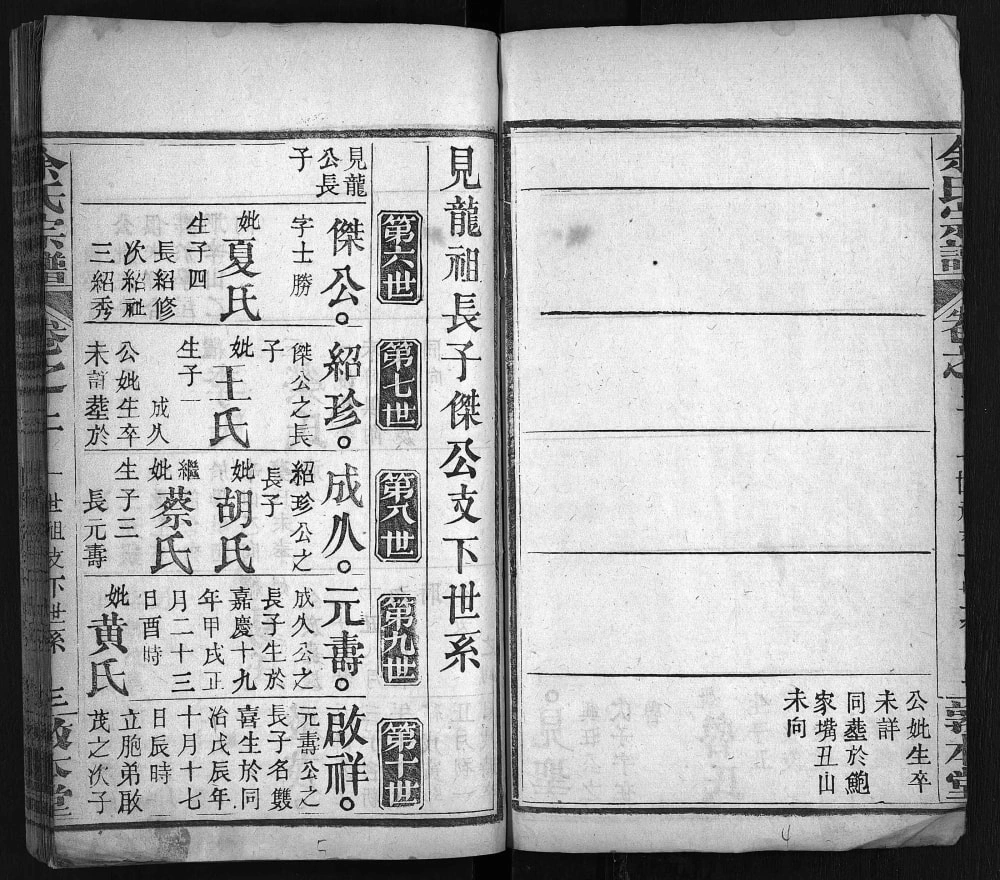 余氏宗譜
公妣生卒
未詳
同塟於鮑
家嘴丑山
未向
見龍祖長子傑公支下世系
第六世
第七世
第八世
第九世
第十世
見龍
公長
子
傑公。
字士勝
妣夏氏
生子四
長紹修
次紹祉
三紹秀
紹珍。
傑公之長
子
妣王氏
生子一
成乆
公妣生卒
未詳塟於
成乆。
紹珍公之
長子
妣胡氏
繼
妣蔡氏
生子三
長元壽
元壽。
成乆公之
長子生於
嘉慶十九
年甲戌正
月二十三
日酉時
妣黄氏
啟祥。
元壽公之
長子名䨇
喜生於同
治戊辰年
十月十七
日辰時
立胞弟敢
茂之次子
余氏宗譜
卷之二
一世祖支下世系
三
敦本堂
5
4